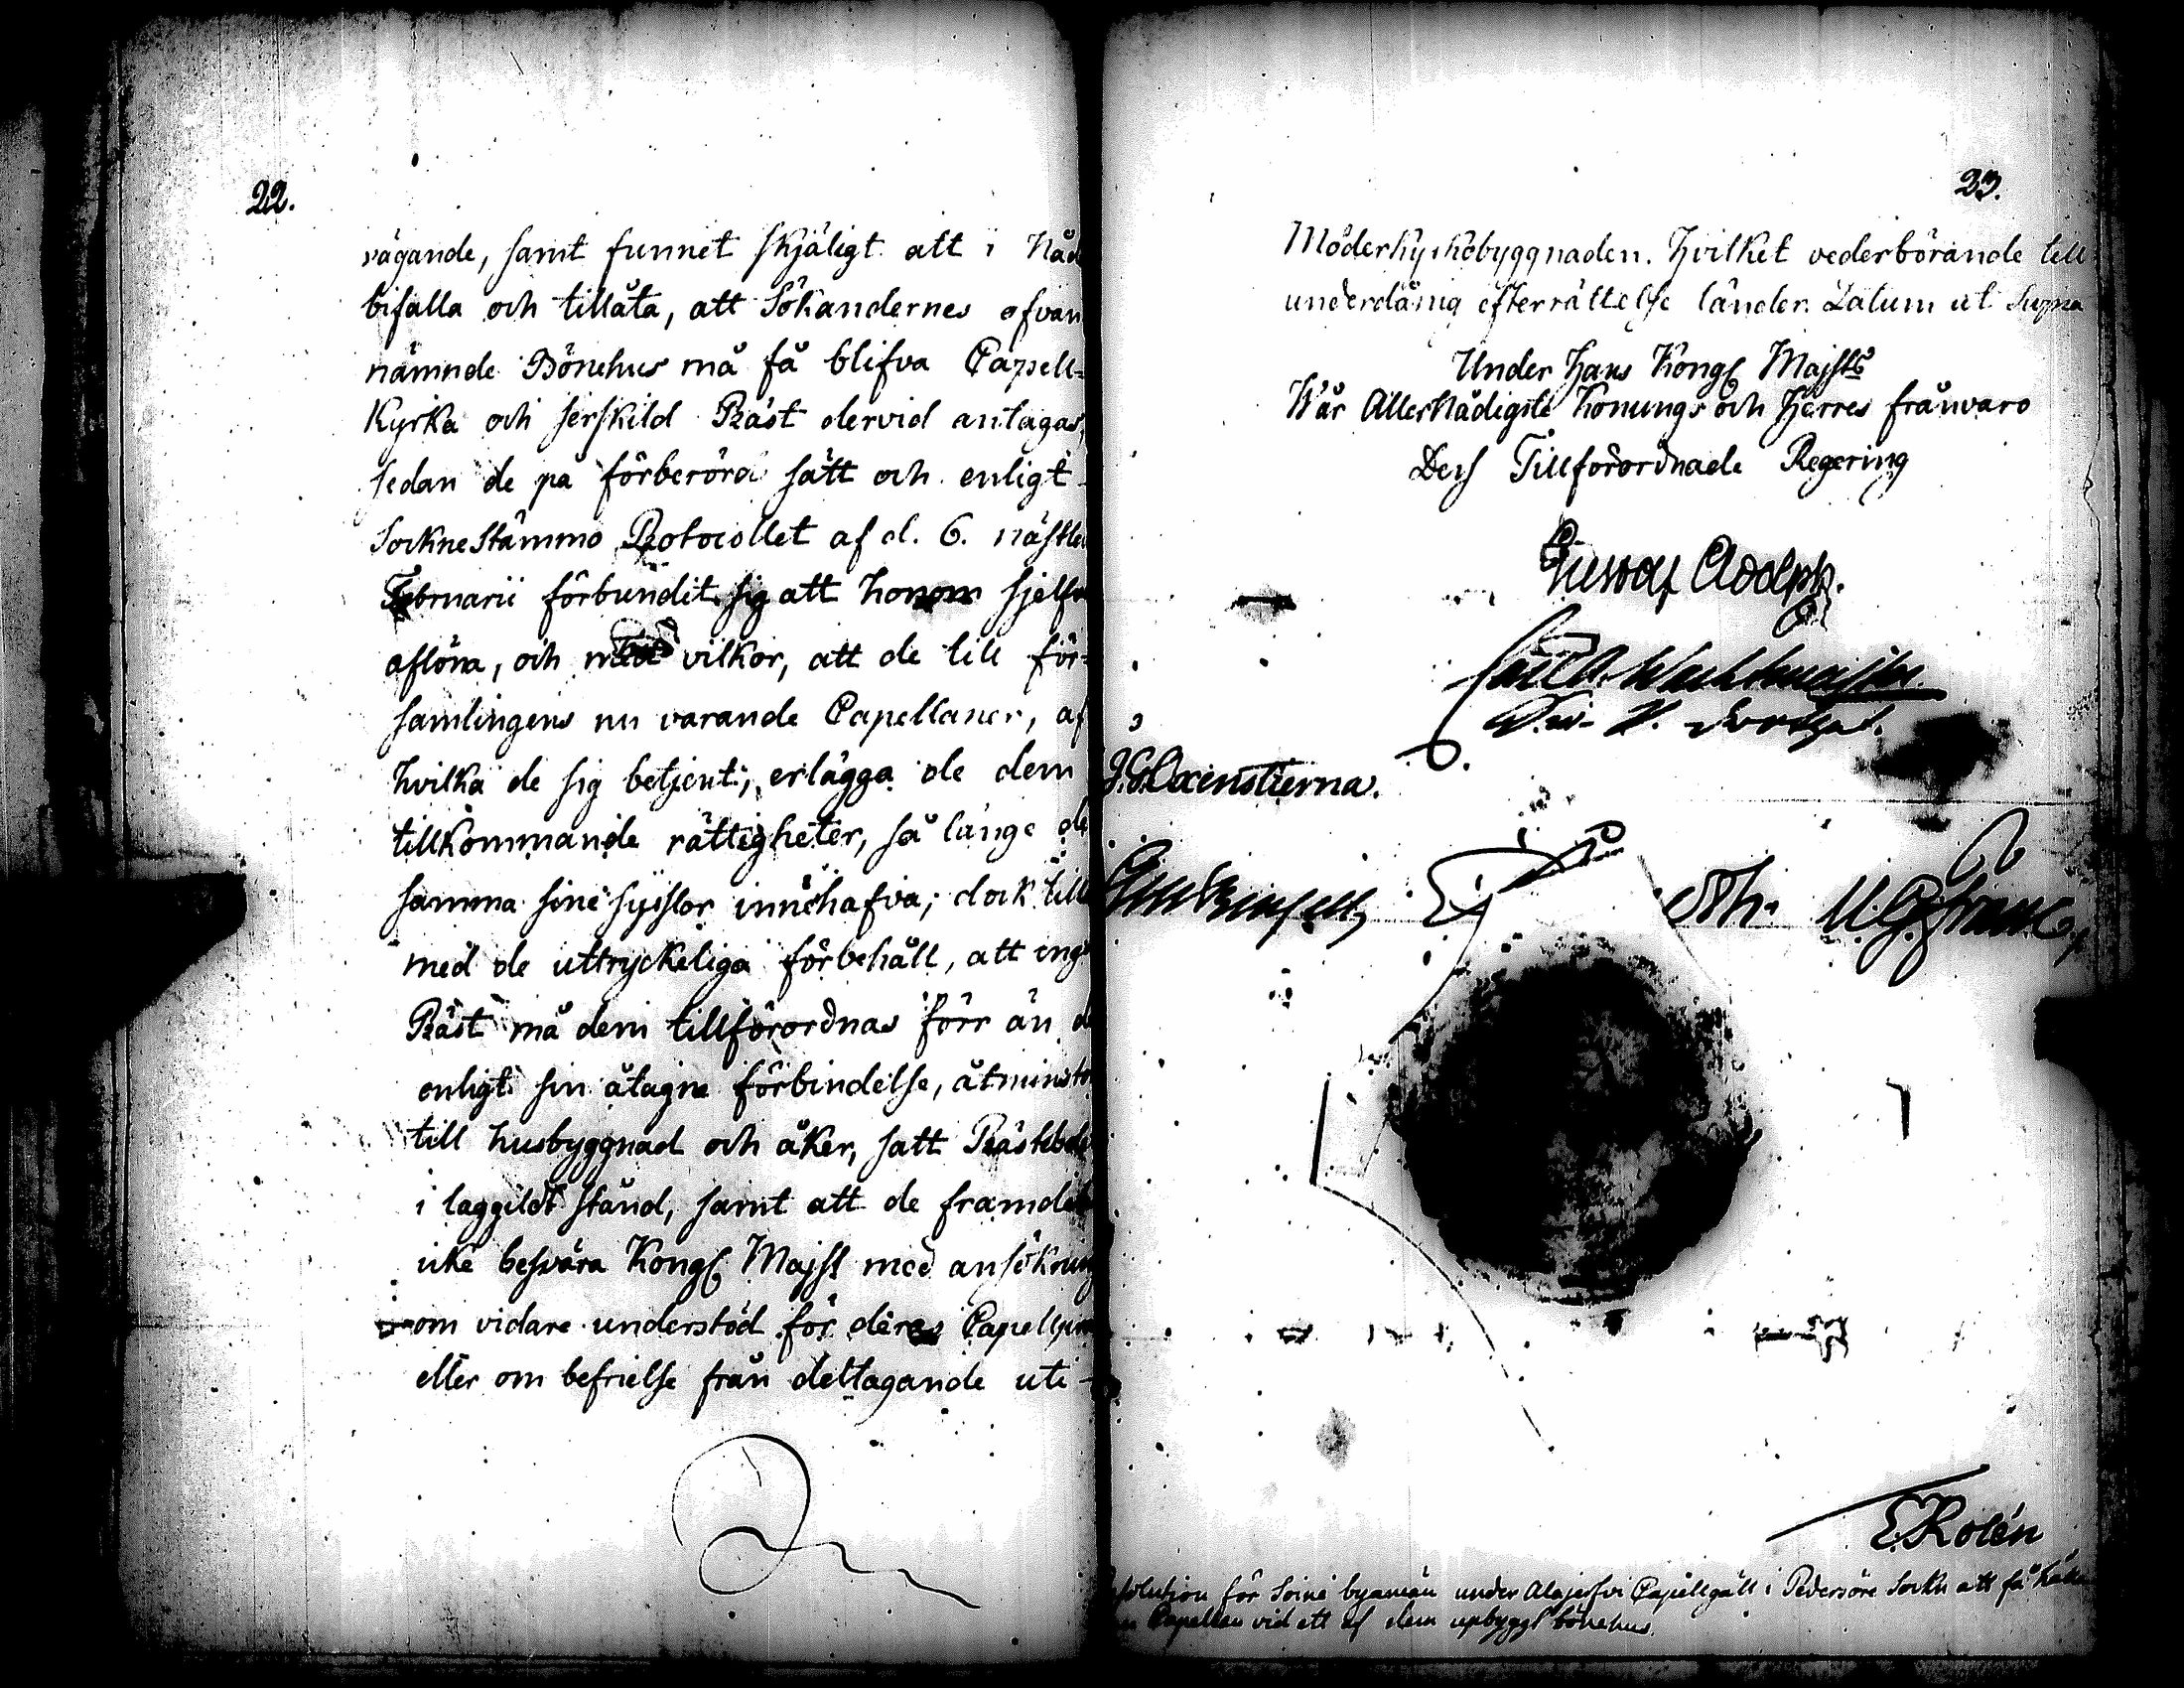 22.
vägande, samt funnet skjäligt att i Nåd
bifalla och tillåta, att Sökandernes ofvan
nämnde Bönehus må få blifva Capell-
Kyrka och serskild Präst dervid antagas,
sedan de på förberörd sätt och enligt
Sockne stämmo Protocollet af d. 6. nästl
Februarii förbundit sig att honom sjelfva
aflöna, och med vilkor, att de till för-
samlingens nu varande Capellaner, af
hvilka de sig betjent, erlägga de dem
tillkommande rättigheter, så länge de
samma sine sysslor innehafva; dock till
med de uttryckeliga förbehåll, att ing
Präst må dem tillförordnas förr än d
enligt sin åtagne förbindelse, åtminsto
till husbyggnad och åker, satt Prästebol
i laggildt stånd, samt att de framdel
icke besvära Kongl Majst med ansökning
om vidare understöd för deras Capell
eller om befrielse från deltagande uti
23.
Moderkyrkobyggnaden. Hvilket vederbörande till
underdånig efterrättelse länder. Datum ut Supra
Under Hans Kongl Majsts
Wår Allernådigste Konungs och Herres frånvaro
Dess Tillförordnade Regering
Gustaf Adolph.
Carl A. Wachtmeister
J. G. Oxenstierna.
E. Rosén
solution för Soini byamän under Alajerfvi Capellgäll i Pedersöre Sockn att få hålla
Capellan vid ett af dem upbyggt bönehus.